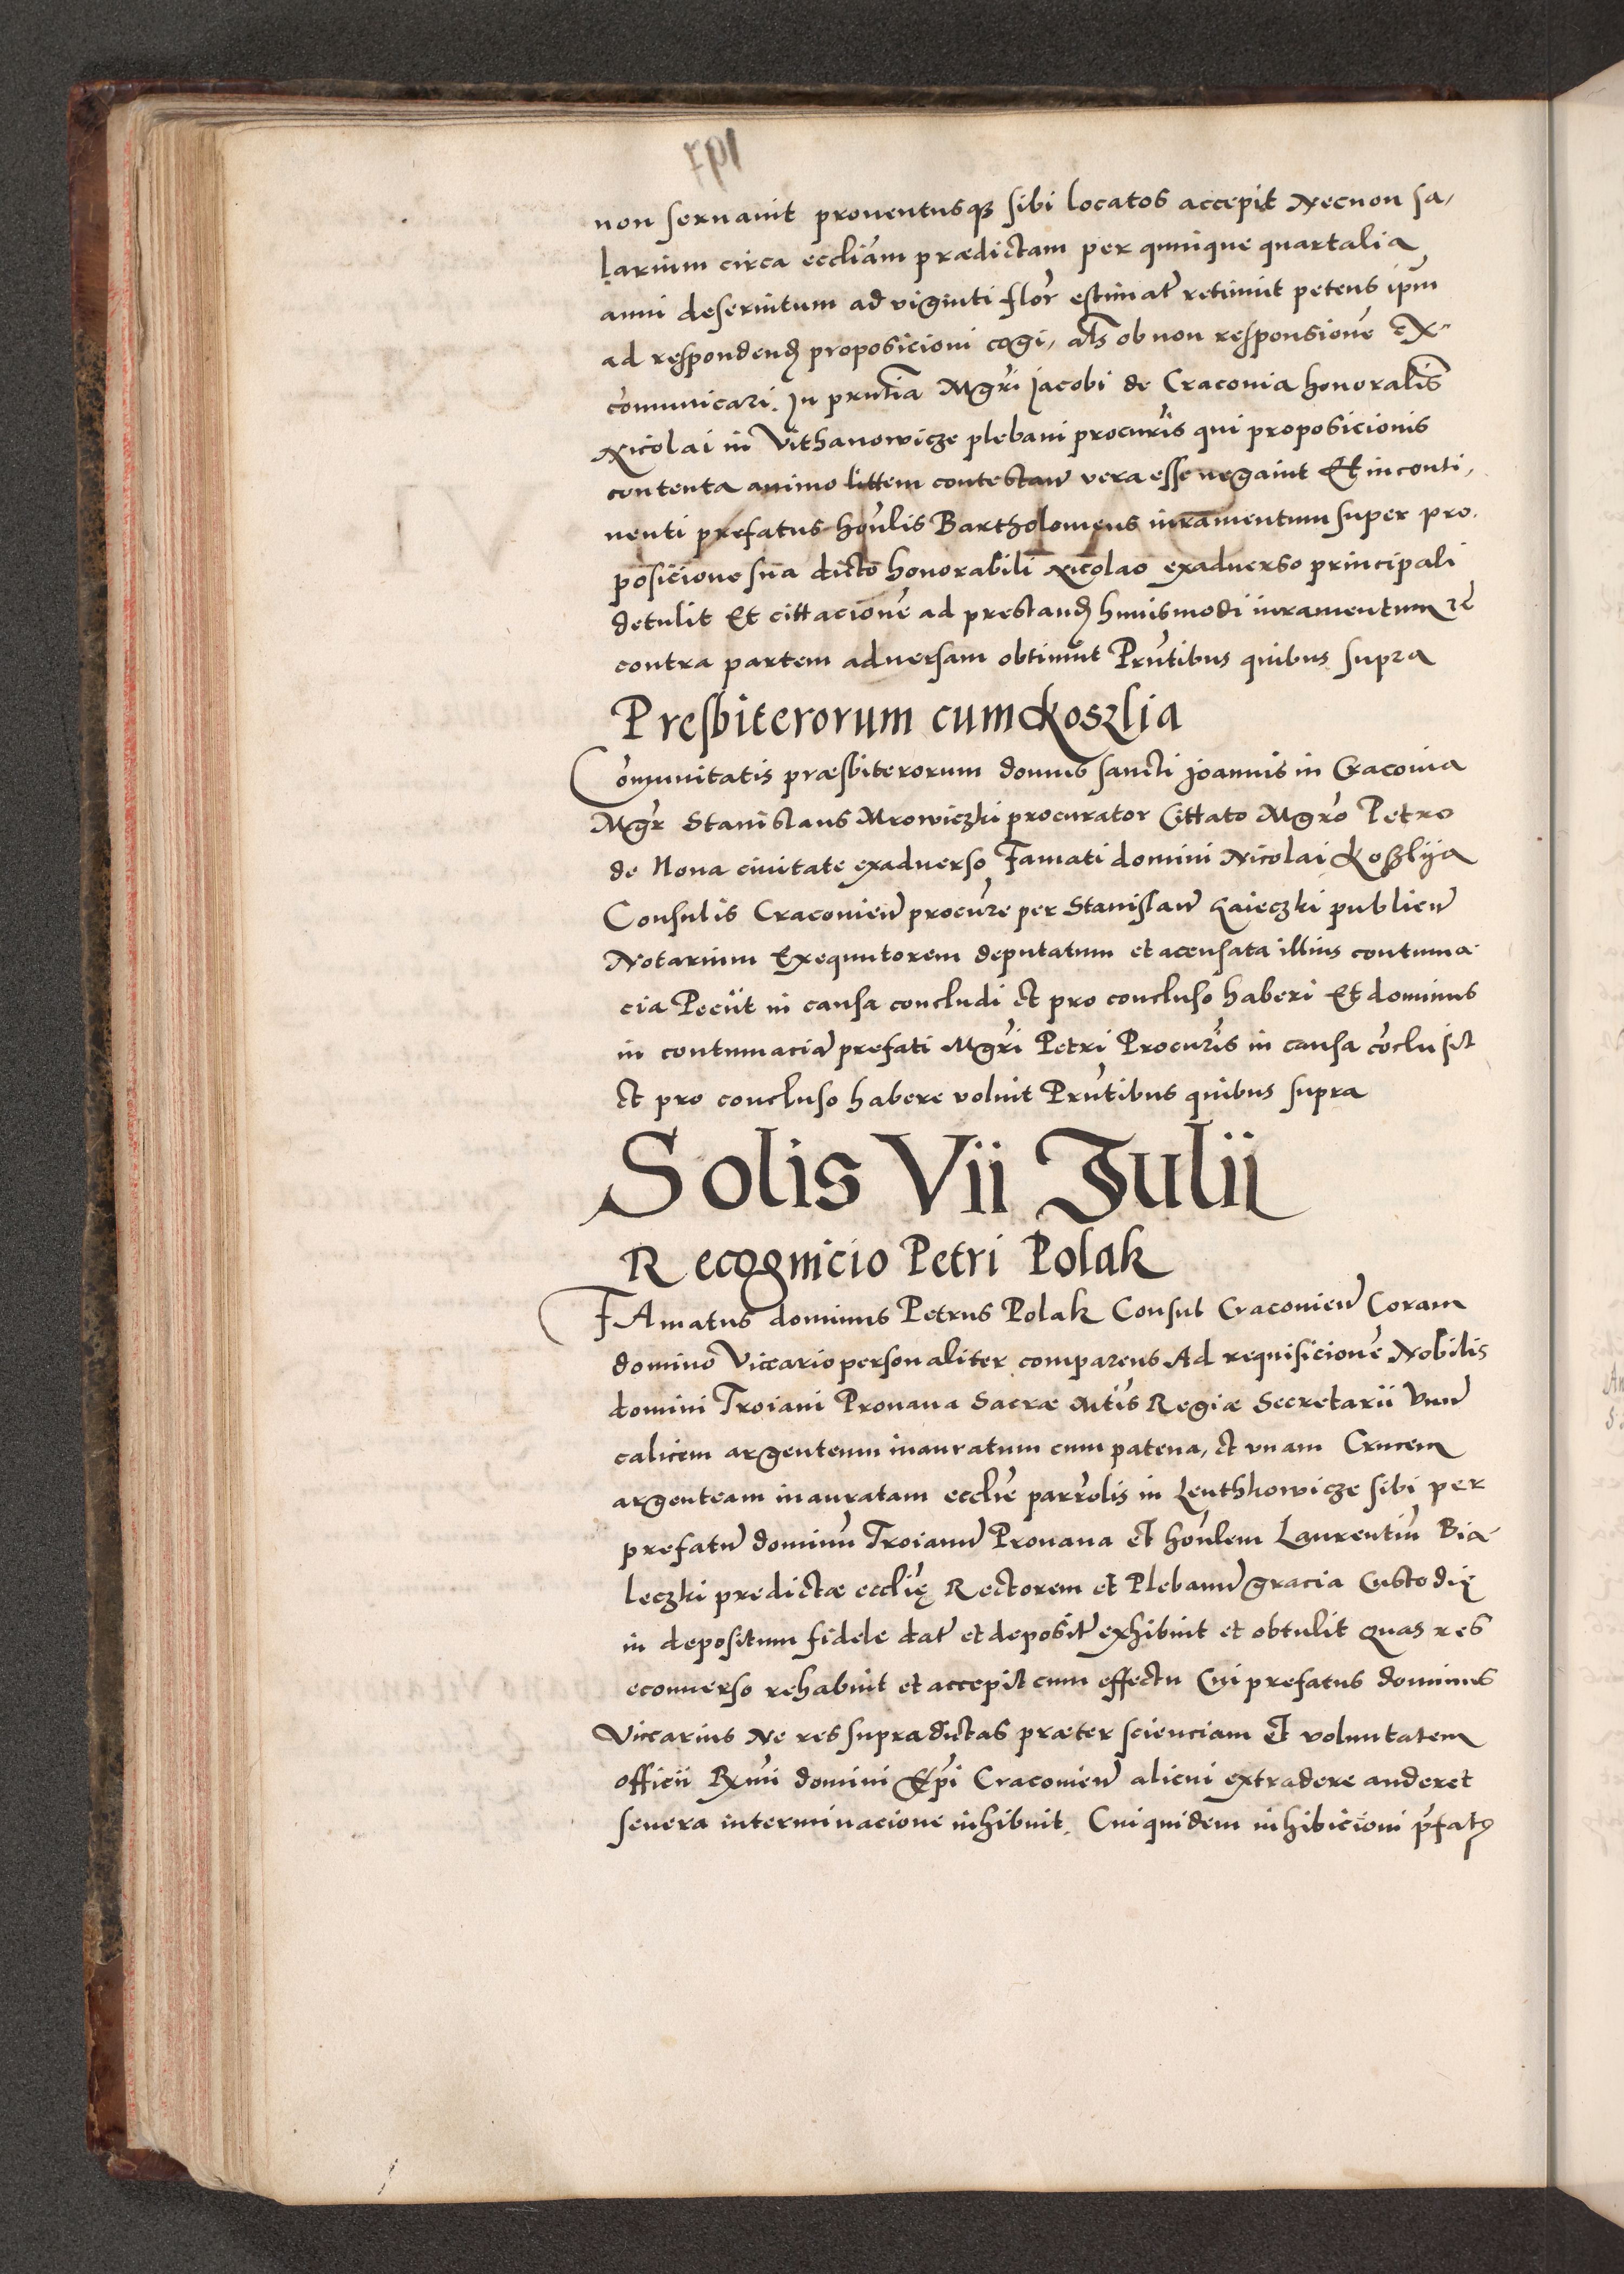 non seruauit prouentusq3 sibi locatos accepit Necnon sa,
larium circa eccliam prædictam per quinque quartalia
anni deseruitum ad viginti flor estimat̃ retinuit petens ipm̃
ad respondend̃ proposicioni cogi, als̃ ob non responsionẽ Ex-
cõmunicari. In pñtia Mgr̃i Jacobi de Craconia honoralis̃
Nicolai in Vithanowicze plebani procur̃is qui proposicionis
contenta animo littem contestan̄ vera esse negauit Et inconti,
nenti prefatus hoñlis Bartholomeus iuramentum super pro.
posicione sua dicto honorabili Nicolao exaduerso principali
detulit Et cittacionẽ ad prestand̃ huiusmodi iuramentum rc̃
contra partem aduersam obtinuit Pñtibus quibus supra
Presbiterorum cum Koszlia
Cõmunitatis præsbiterorum domus sancti Joannis in Cracouia
Mgr̃ Stanislaus Mrowiczki procurator Cittato Mgr̃o Petro
de Noua ciuitate exaduerso Famati domini Nicolai Koszlija
Consulis Cracouien̄ procur̃e per Stanislaw̄ Zaieczki publicu̅
Notarium Exequutorem deputatum et acensata illius contuma-
cia Peciit in causa concludi et pro concluso haberi Et dominus
in contumaciã prefati Mgr̃i Petri Procur̃is in causa cõclusit
et pro concluso habere voluit Pñtibus quibus supra
Solis Vii Julij
Recognicio Petri Polak
FAmatus dominus Petrus Polak Consul Cracouien̄ Coram
domino Viccario personaliter comparens Ad requisicionẽ Nobilis
domini Troiani Prouana Sacræ Mtis̃ Regiæ Secretarii Vnu̅
calicem argenteum inauratum cum patena, et vnam Crucem
argenteam inauratam ecclie parrolis in Lenthkowicze sibi per
prefatu̅ dominu̅ Troianu̅ Prouana et honlem Laurentiu̅ Bia-
leczki predictæ ecclię Rectorem et Plebanu̅ gracia Custodię
in depositum fidele dat̃ et deposit̃ exhibuit et obtulit quas res
econuerso rehabuit et accepit cum effectu Cui prefatus dominus
Viccarius Ne res supradictas præter scienciam Et voluntatem
officii Rxm̃i domini Ep̃i Cracouien̄ alicui extradere auderet
seuera interminacione inhibuit. Cui quidem inhibicioni p̃fat9